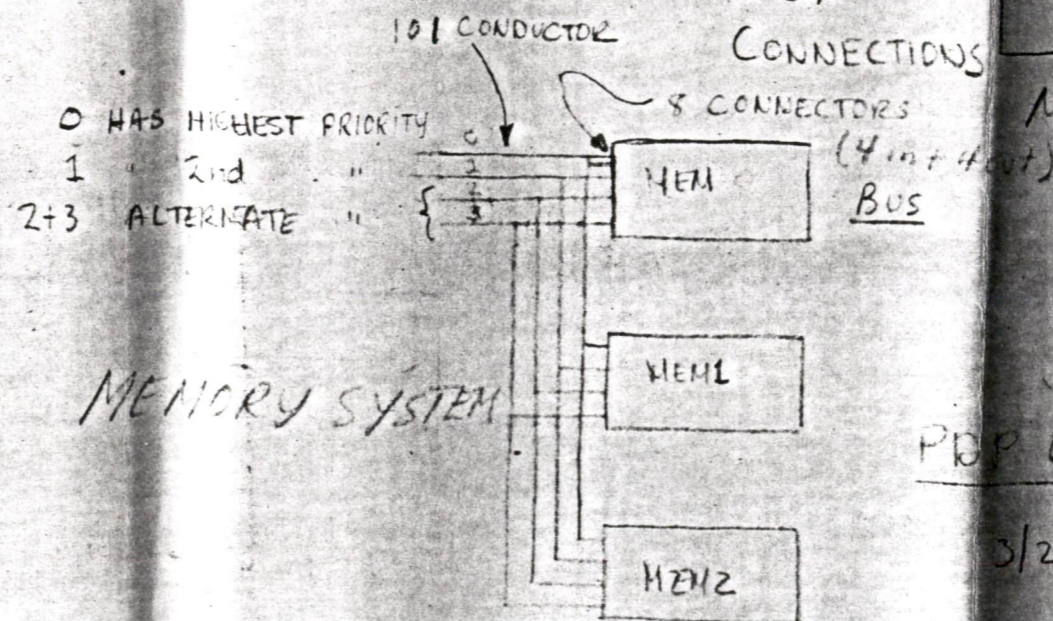 101 CONDUCTOR
CONNECTIONS
8 CONNECTORS
(4 in + 4 out)
BUS
0 HAS HIGHEST PRIORITY
1 " 2nd "
2+3 ALTERNATE "
0
2
3
MEM
MEM1
MEMORY SYSTEM
PDP
3/2
MEM2